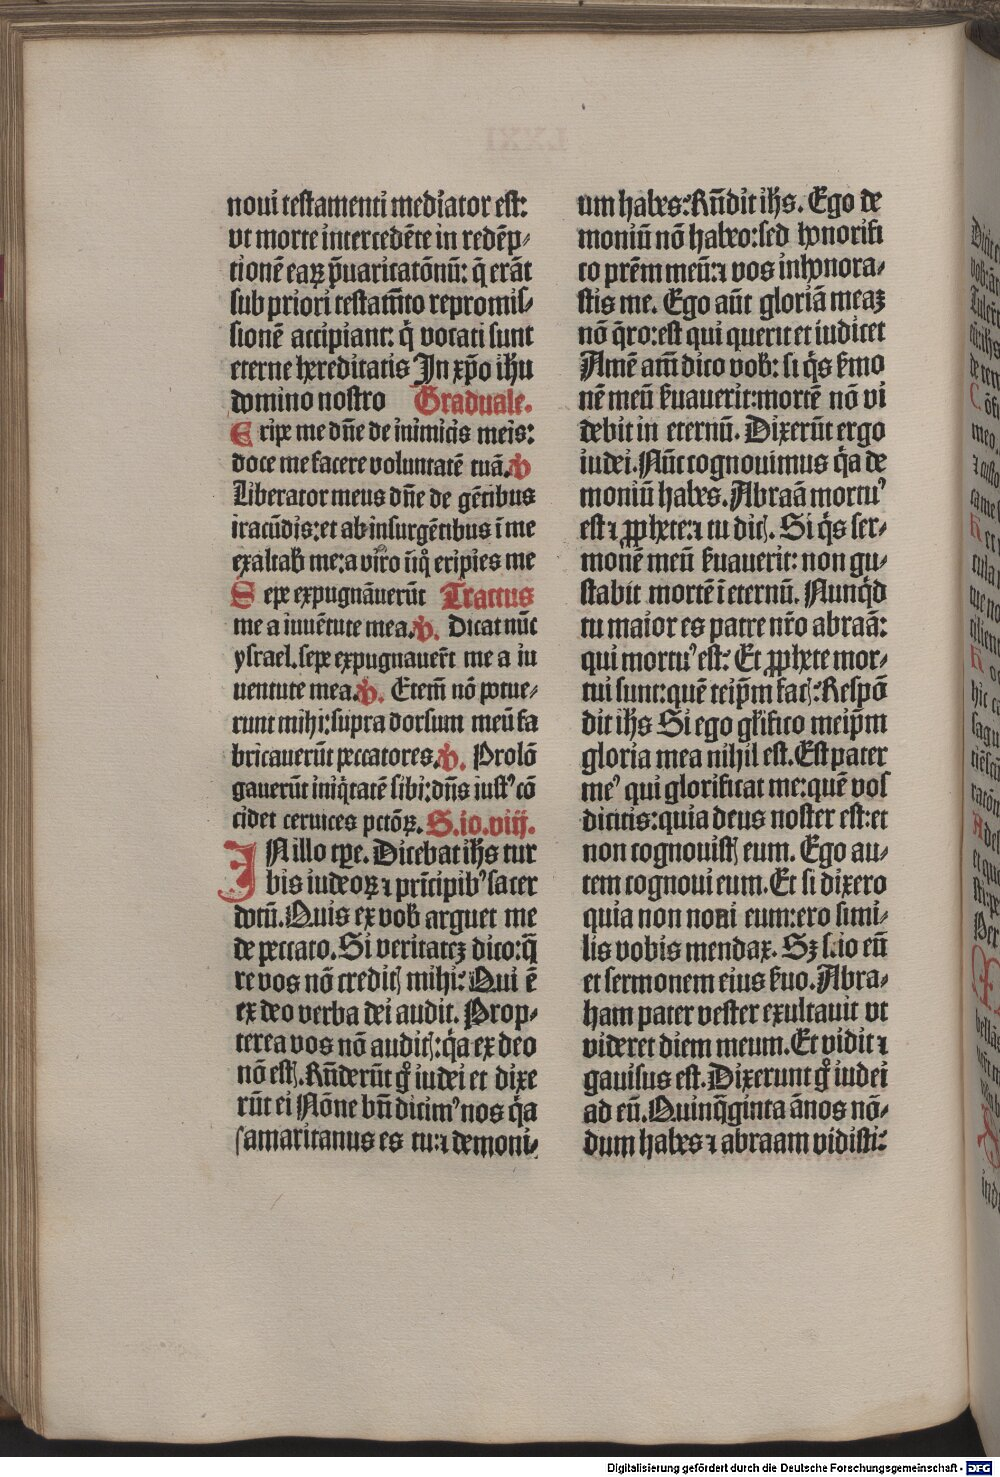 noui testamenti mediator est:
vt morte intercedēte in redēp-
tionē eaꝝ p̄uaricatōnū: q̄ erāt
sub priori testam̄to repromis-
sionē accipiant: q̇ vocati sunt
eterne hereditatis In xp̄o ihu
domino nostro Graduale.
Eripe me dn̄e de inimicis meis:
doce me facere voluntatē tuā. ℣
Liberator meus dn̄e de gētibus
iracūdis: et ab insurgētibus ī me
exaltab̄ me: a viro īiq̊ eripies me
Sepe expugnāuerūt Tractus
me a iuuētute mea. ℣. Dicat nūc
ysrael. sepe expugnauer̄t me a iu
uentute mea. ℣. Etem̄ nō potue-
runt mihi: supra dorsum meū fa
bricauerūt peccatores. ℣. Prolō
gauerūt iniq̇tatē sibi: dn̄s iustꝰ cō
cidet ceruices pctōꝝ. S. io. viij.
IN illo tꝑe. Dicebat ihs tur
bis iudeoꝝ ⁊ prīcipibꝰ sacer
dotū. Quis ex vob̄ arguet me
de peccato. Si veritatēꝫ dico: q̄
re vos nō creditꝭ mihi: Qui ē
ex deo verba dei audit. Prop-
terea vos nō auditꝭ: q̇a ex deo
nō estꝭ. Rn̄derūt g̊ iudei et dixe
rūt ei Nōne bn̄ dicimꝰ nos q̇a
samaritanus es tu: ⁊ demoni-
um habes: Rn̄dit ihs. Ego de
moniū nō habeo: sed honorifi
co prēm meū: ⁊ vos inhonora-
stis me. Ego aūt gloriā meaꝫ
nō q̄ro: est qui querit et iudicet
Amē am̄ dico vob̄: si q̇s s̄mo
nē meū s̄uauerit: mortē nō vi
debit in eternū. Dixerūt ergo
iudei. Nūc cognouimus q̇a de
moniū habes. Abraā mortuꝰ
est ⁊ ꝓphete: ⁊ tu dicꝭ. Si q̇s ser-
monē meū s̄uauerit: non gu-
stabit mortē ī eternū. Nunq̇d
tu maior es patre nr̄o abraā:
qui mortuꝰ est: Et ꝓphete mor-
tui sunt: quē teip̄m facꝭ: Respō
dit ihs Si ego gl̄ifico meip̄m
gloria mea nihil est. Est pater
meꝰ qui glorificat me: quē vos
dicitis: quia deus noster est: et
non cognouistꝭ eum. Ego au-
tem cognoui eum. Et si dixero
quia non noui eum: ero simi-
lis vobis mendax. Sꝫ scio eū
et sermonem eius s̄uo. Abra-
ham pater vester exultauit vt
videret diem meum. Et vidit ⁊
gauisus est. Dixerunt g̊ iudei
ad eū. Quinq̄ginta ānos nō-
dum habes ⁊ abraam vidisti:
Digitalisierung gefördert durch die Deutsche Forschungsgemeinschaft - DFG